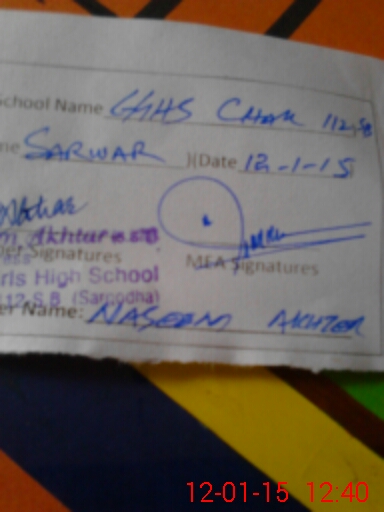 School Name GGHS Chak 112 SB
me SARWAR )(Date 12-1-15
Akhtar
Signatures
MEA Signatures
rls High School
112 S.B (Sargodha)
er Name: NASEEM AKHTER
12-01-15 12:40